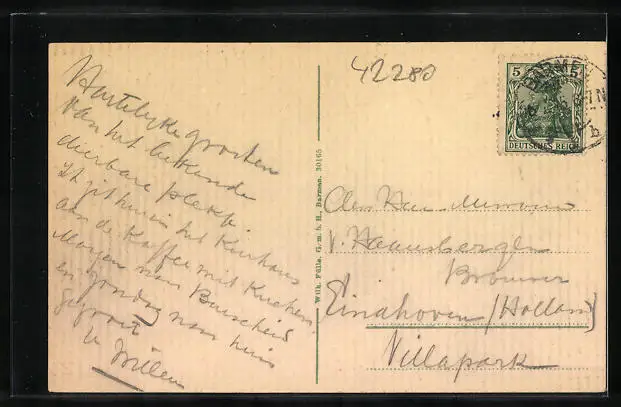 42280
Hartelijke groeten
van het bekende
dierbare plekje.
Ik zit hier in het Kurhaus
aan de Kaffee mit Kuchen.
Morgen naar
en zondag naar huis
gegroet
Willem
Wilh. Fülle, G. m. b. H., Barmen. 30165
5 5
DEUTSCHES REICH
BARMEN
b
Den Heer Mevrouw
v.
Brouwer
Eindhoven (Holland)
Villapark